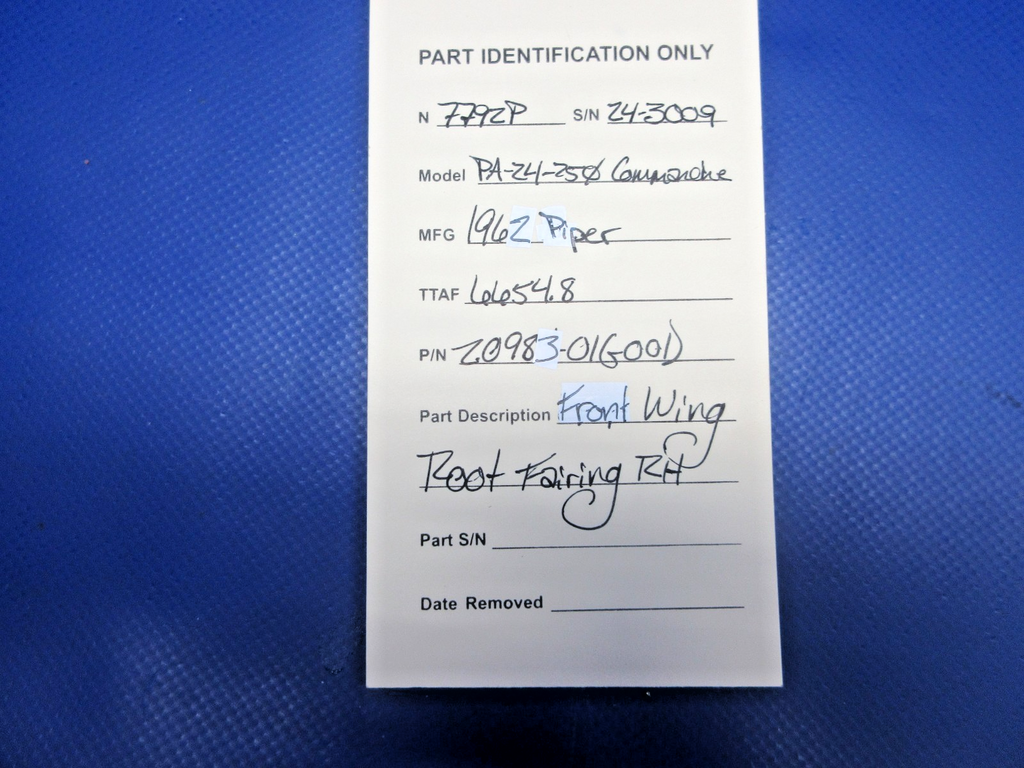 PART IDENTIFICATION ONLY
N 7792P S/N 24-3009
Model PA-24-250 Commanche
MFG 1962 Piper
TTAF 6654.8
P/N 20983-01(GOOD)
Part Description Front Wing
Root Fairing RH
Part S/N
Date Removed